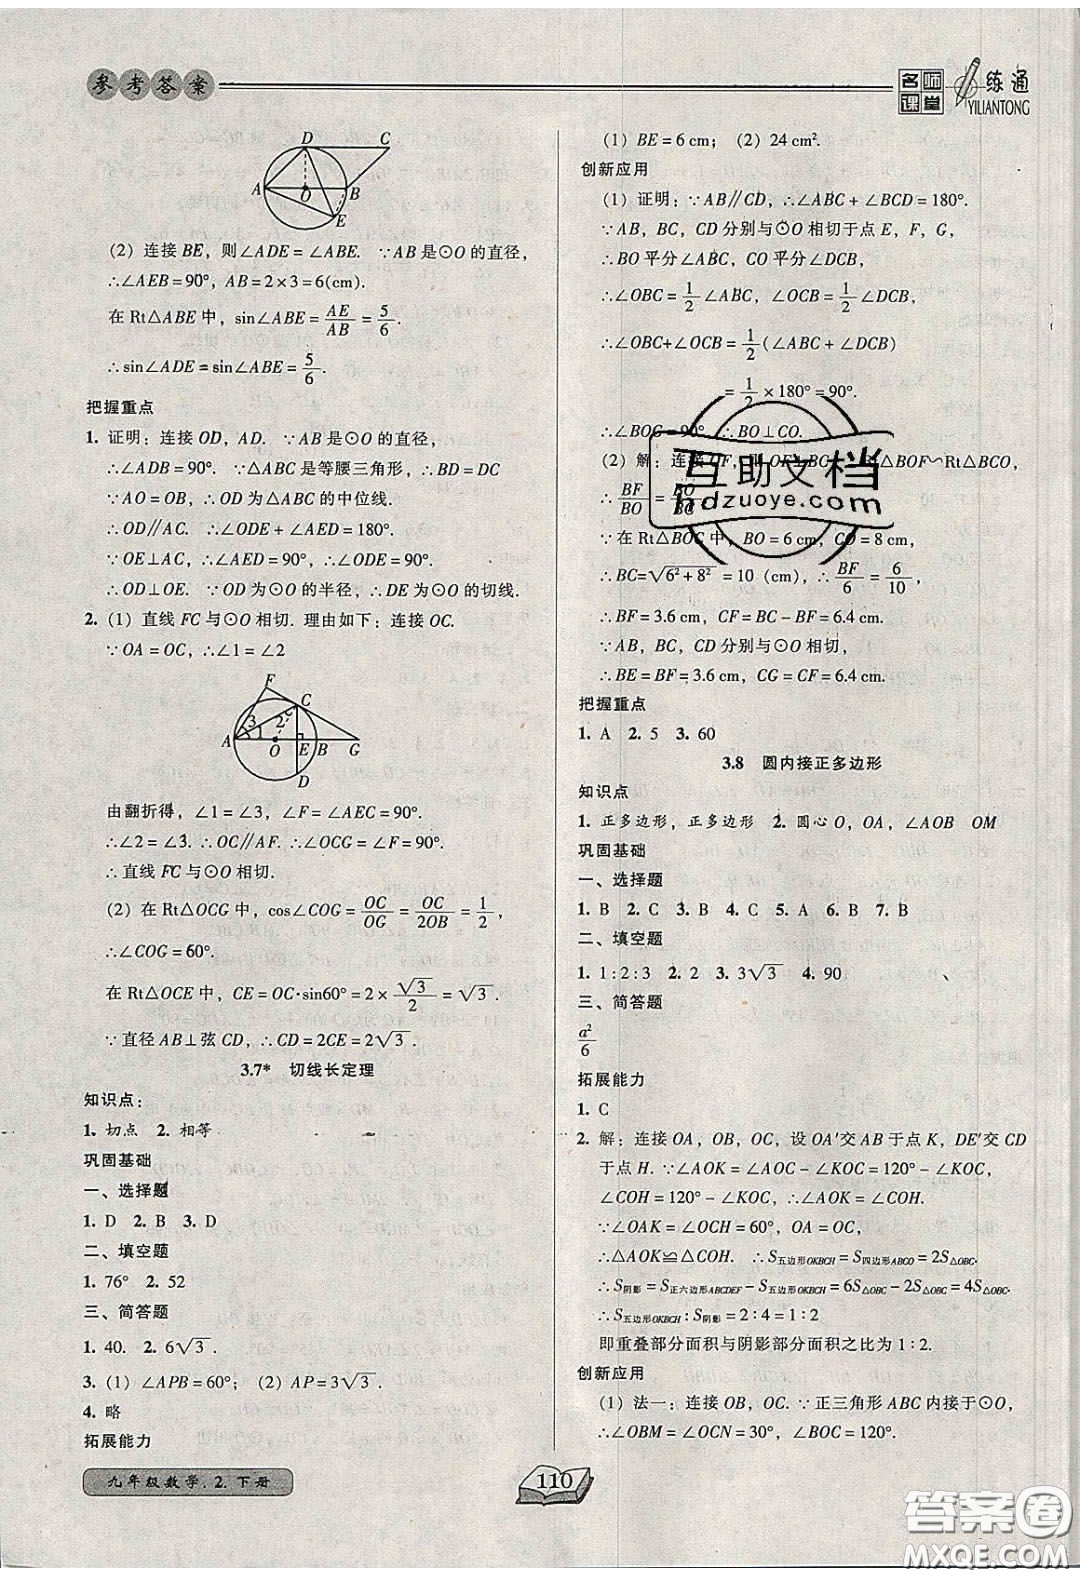 参考答案
名师课堂
一练通
YILIANTONG
D C
A O B
E
(2) 连接 BE, 则∠ADE = ∠ABE. ∵AB 是⊙O 的直径,
∴∠AEB = 90°, AB = 2 × 3 = 6(cm).
在 Rt△ABE 中, sin∠ABE = AE/AB = 5/6.
∴sin∠ADE = sin∠ABE = 5/6.
把握重点
1. 证明: 连接 OD, AD. ∵AB 是⊙O 的直径,
∴∠ADB = 90°. ∵△ABC 是等腰三角形, ∴BD = DC
∵AO = OB, ∴OD 为△ABC 的中位线.
∴OD∥AC. ∴∠ODE + ∠AED = 180°.
∵OE⊥AC, ∴∠AED = 90°, ∴∠ODE = 90°.
∴OD⊥OE. ∵OD 是⊙O 的半径, ∴DE 为⊙O 的切线.
2. (1) 直线 FC 与⊙O 相切. 理由如下: 连接 OC.
∵OA = OC, ∴∠1 = ∠2
F C
3 2
A 1 O E B G
D
由翻折得, ∠1 = ∠3, ∠F = ∠AEC = 90°.
∴∠2 = ∠3. ∴OC∥AF. ∴∠OCG = ∠F = 90°.
∴直线 FC 与⊙O 相切.
(2) 在 Rt△OCG 中, cos∠COG = OC/OG = OC/2OB = 1/2,
∴∠COG = 60°.
在 Rt△OCE 中, CE = OC·sin60° = 2 × √3/2 = √3.
∵直径 AB⊥弦 CD, ∴CD = 2CE = 2√3.
3.7* 切线长定理
知识点:
1. 切点 2. 相等
巩固基础
一、选择题
1. D 2. B 3. D
二、填空题
1. 76° 2. 52
三、简答题
1. 40. 2. 6√3.
3. (1) ∠APB = 60°; (2) AP = 3√3.
4. 略
拓展能力
九年级数学.2.下册
(1) BE = 6 cm; (2) 24 cm².
创新应用
(1) 证明: ∵AB∥CD, ∴∠ABC + ∠BCD = 180°.
∵AB, BC, CD 分别与⊙O 相切于点 E, F, G,
∴BO 平分∠ABC, CO 平分∠DCB,
∴∠OBC = 1/2 ∠ABC, ∠OCB = 1/2 ∠DCB,
∴∠OBC + ∠OCB = 1/2(∠ABC + ∠DCB)
= 1/2 × 180° = 90°.
∴∠BOC = 90°, ∴BO⊥CO.
(2) 解: 连接 OF, 则 OF⊥BC, Rt△BOF∽Rt△BCO,
∴BF/BO = BO/BC
∵在 Rt△BOC 中, BO = 6 cm, CO = 8 cm,
∴BC = √6² + 8² = 10 (cm), ∴BF/6 = 6/10
∴BF = 3.6 cm, CF = BC − BF = 6.4 cm.
∵AB, BC, CD 分别与⊙O 相切,
∴BE = BF = 3.6 cm, CG = CF = 6.4 cm.
把握重点
1. A 2. 5 3. 60
3.8 圆内接正多边形
知识点
1. 正多边形, 正多边形 2. 圆心 O, OA, ∠AOB OM
巩固基础
一、选择题
1. B 2. C 3. B 4. C 5. A 6. B 7. B
二、填空题
1. 1:2:3 2. 2 3. 3√3 4. 90
三、简答题
a²/6
拓展能力
1. C
2. 解: 连接 OA, OB, OC, 设 OA′交 AB 于点 K, DE′交 CD
于点 H. ∵∠AOK = ∠AOC − ∠KOC = 120° − ∠KOC,
∠COH = 120° − ∠KOC, ∴∠AOK = ∠COH.
∵∠OAK = ∠OCH = 60°, OA = OC,
∴△AOK≌△COH. ∴S五边形OKBCH = S四边形ABCO = 2S△OBC.
∴S阴影 = S正六边形ABCDEF − S五边形OKBCH = 6S△OBC − 2S△OBC = 4S△OBC.
∴S五边形OKBCH : S阴影 = 2:4 = 1:2
即重叠部分面积与阴影部分面积之比为 1:2.
创新应用
(1) 法一: 连接 OB, OC. ∵正三角形 ABC 内接于⊙O,
∴∠OBM = ∠OCN = 30°, ∠BOC = 120°.
110
互助文档
hdzuoye.com
答案圈
MXQE.COM